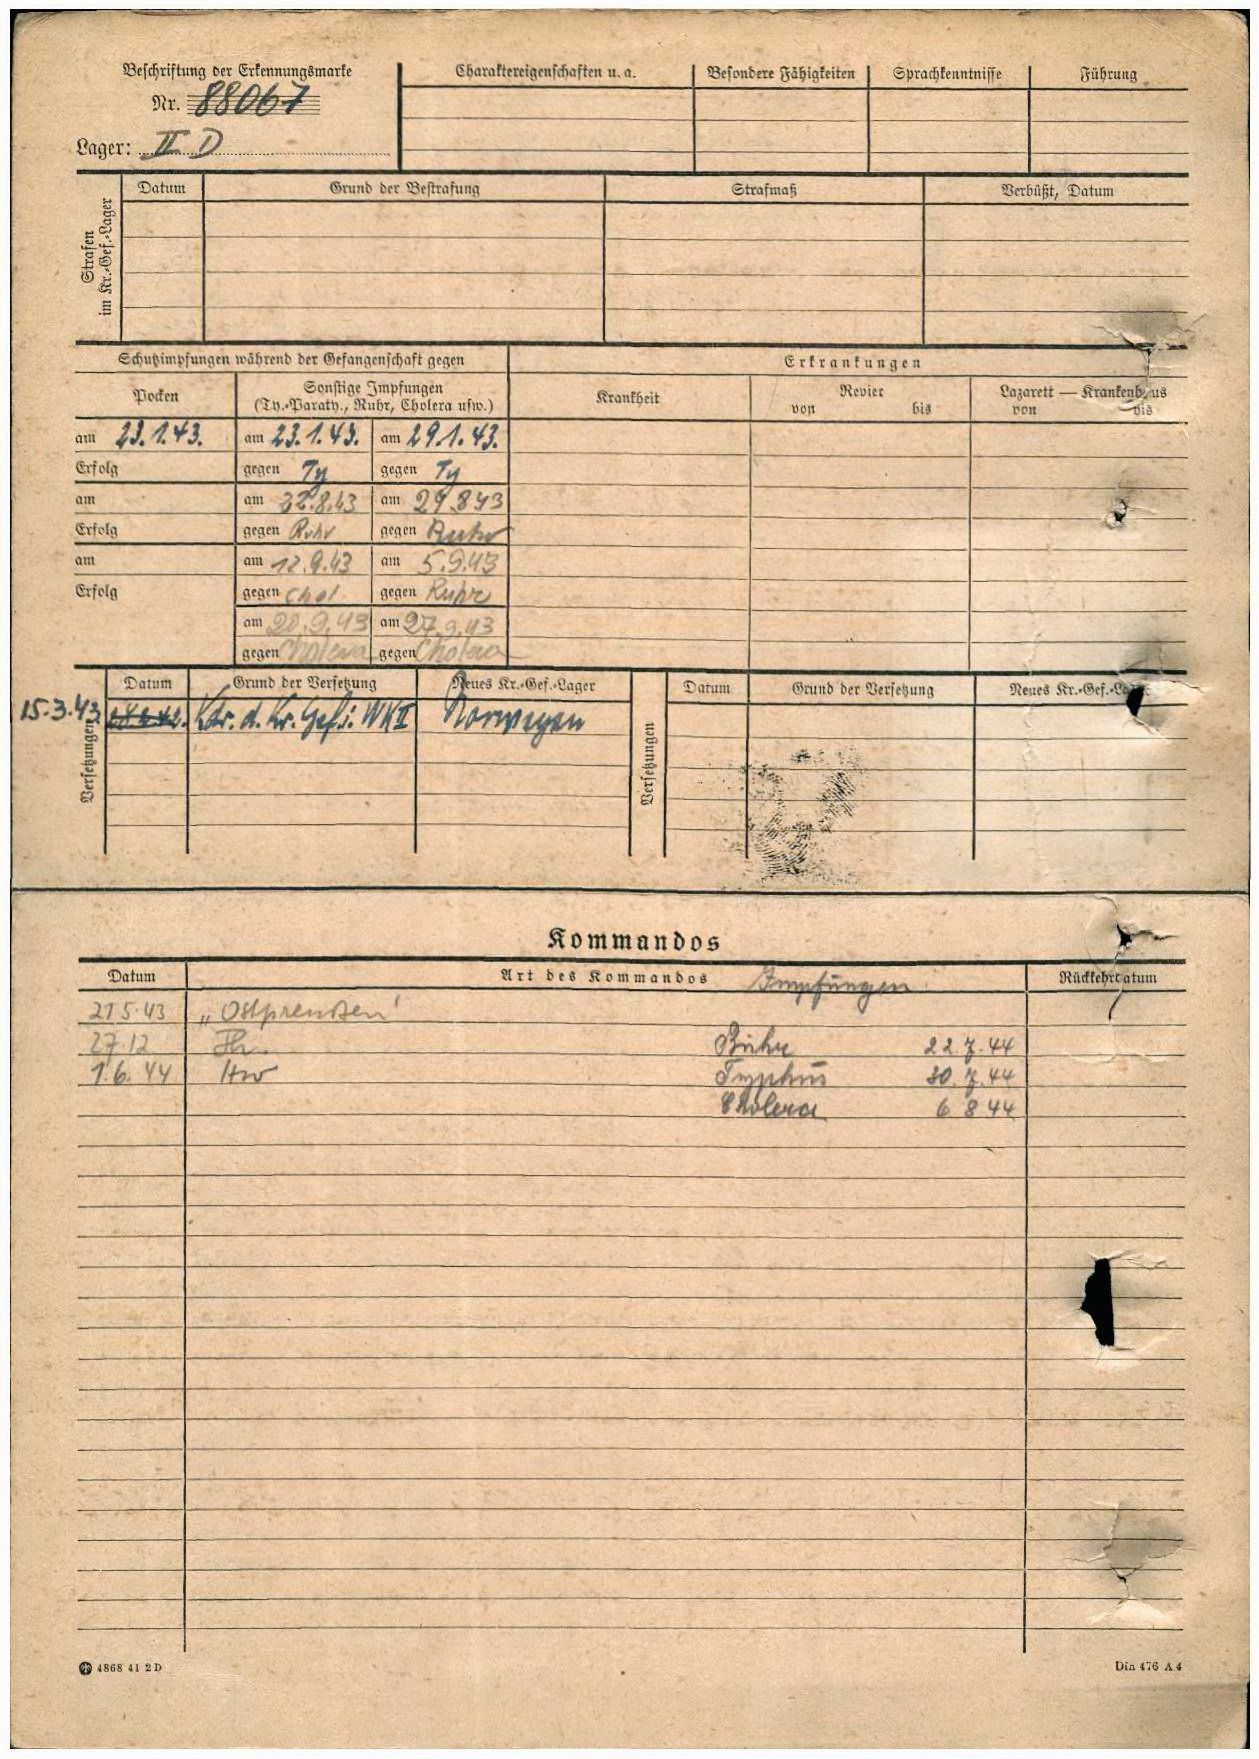 Beschriftung der Erkennungsmarke
Nr. 88067
Lager: II D
Charaktereigenschaften u. a.
Besondere Fähigkeiten
Sprachkenntnisse
Führung
Strafen im Kr.-Gef.-Lager
Datum
Grund der Bestrafung
Strafmaß
Verbüßt, Datum
Schutzimpfungen während der Gefangenschaft gegen
Erkrankungen
Pocken
Sonstige Impfungen
(Ty.-Paraty., Ruhr, Cholera usw.)
Krankheit
Revier
von bis
Lazarett — Krankenhaus
von bis
am 23.1.43. am 23.1.43. am 29.1.43.
Erfolg gegen Ty gegen Ty
am am 22.8.43 am 29.8.43
Erfolg gegen Ruhr gegen Ruhr
am am 12.9.43 am 5.9.43
Erfolg gegen Chol gegen Ruhr
am 20.9.43 am 27.9.43
gegen Cholera gegen Cholera
Versetzungen
Datum
Grund der Versetzung
Neues Kr.-Gef.-Lager
Versetzungen
Datum
Grund der Versetzung
Neues Kr.-Gef.-Lager
15.3.43 Kdr. d. Kr. Gef. i. WK II Norwegen
Kommandos
Datum
Art des Kommandos Impfungen
Rückkehrdatum
21 5. 43 „Ostpreußen'
27. 12 Ruhr 22 7. 44
1. 6. 44 Typhus 30. 7. 44
Cholera 6 8 44
4868 41 2 D
Din 476 A 4